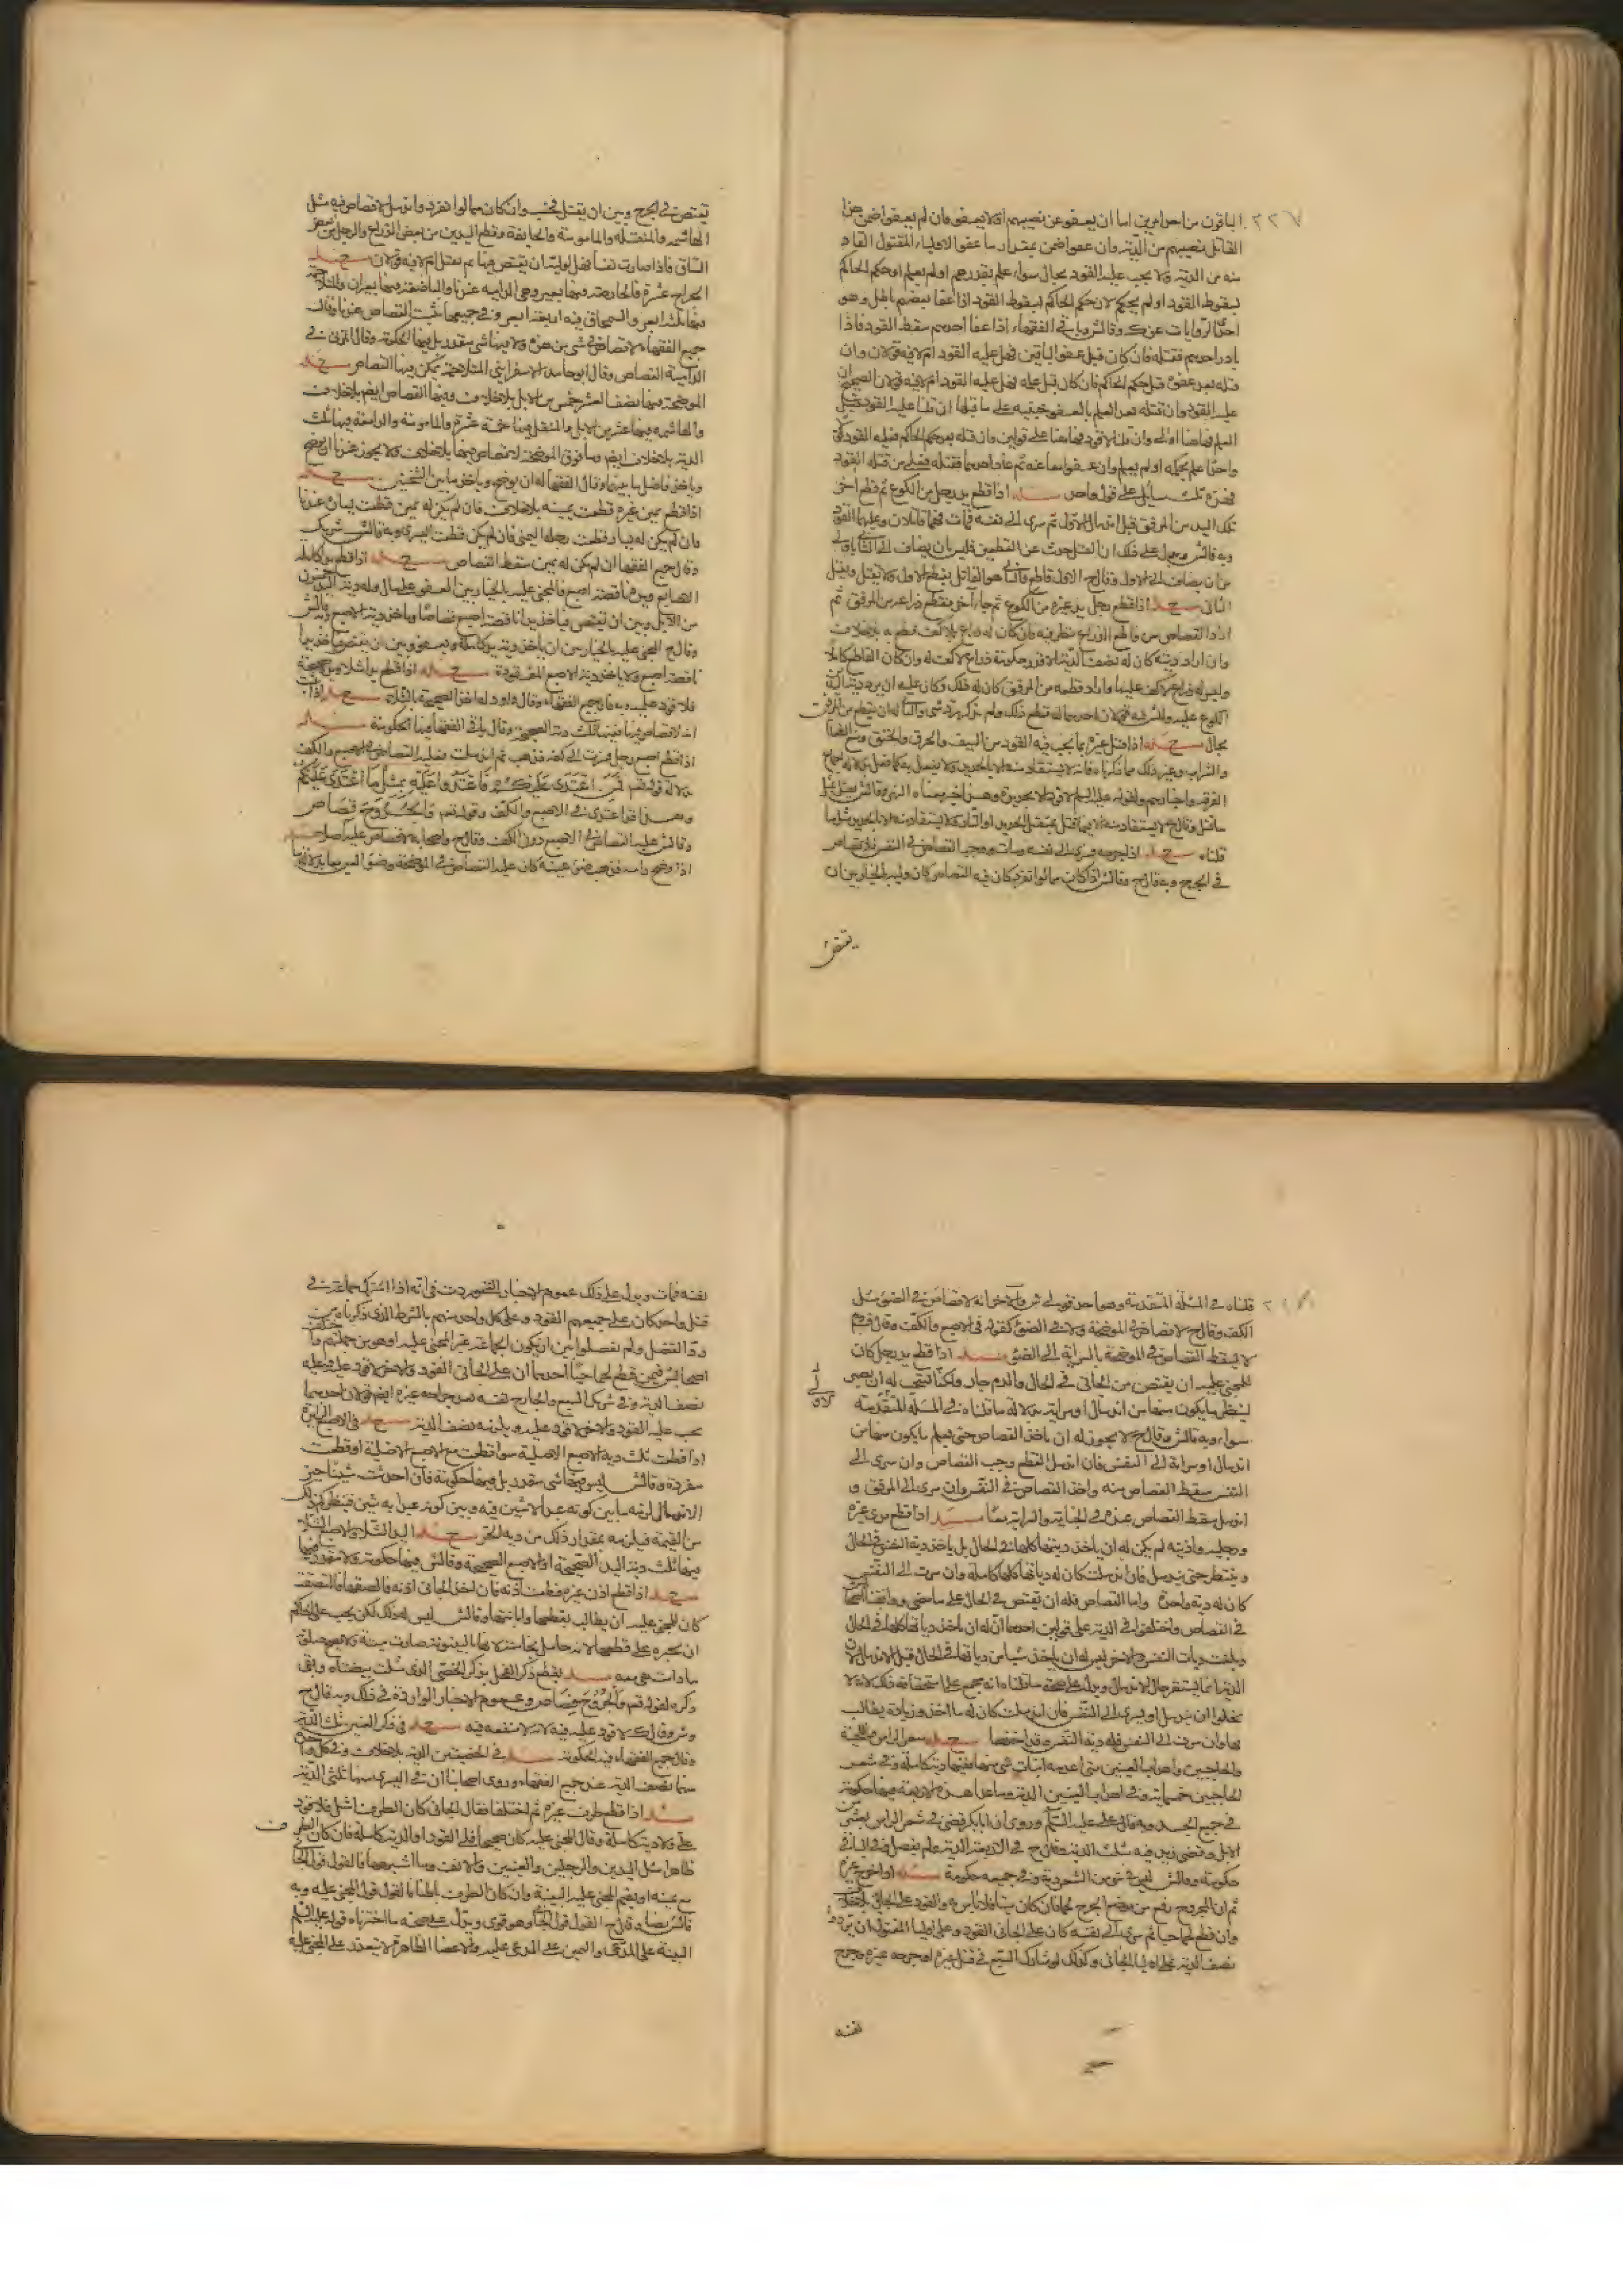 ٢٢٧
الباقون من احد امرين اما ان يعفو عن نصيبهم او لا يعفو فان لم يعفوا ضمن هذا
القاتل نصيبهم من الدية وان عفوا ضمن بمقدار ما عفو الاولياء المقتول القاد
منه من الدية ولا يجب عليه القود بحال سواء علم بقدرهم او لم يعلم او حكم الحاكم
بسقوط القود او لم يحكم لان حكم الحاكم بسقوط القود اذا عفا بعضهم باطل وهو
احد الروايات عن ك وقال ش وباقي الفقهاء اذا عفا احدهم سقط القود فاذا
بادر احدهم فقتله فان كان قبل عفو الباقين فهل عليه القود ام لا فيه قولان وان
قتله بعد عفوه قبل حكم الحاكم فان كان قبل علمه فهل عليه القود ام لا فيه قولان الصحيح ان
عليه القود وان قتله بعد العلم بالعفو
العلم فهاهنا اولى وان قلنا لا قود فهاهنا على قولين وان قتله بعد حكم الحاكم فعليه القود
واحدا علم بحكمه او لم يعلم وان عفوا معا عنه ثم عاد احدهما فقتله فعلى من قتله القود
فهذه ثلث مسائل على قول واحد اذا قطع يد رجل من الكوع ثم قطع اخر
تلك اليد من المرفق قبل اندمال الاول ثم سرى الى نفسه فمات فهما قاتلان وعليهما القود
وبه قال ش دليلنا على ذلك ان القتل حدث عن القطعين فليس بان يضاف الى الثاني اولى
من ان يضاف الى الاول وقال ح الاول قاطع والثاني هو القاتل يقطع الاول ولا يقتل ويقتل
الثاني اذا قطع رجل يد غيره من الكوع ثم جاء آخر فقطع ذراعه من المرفق ثم
اراد القصاص من قاطع الذراع نظر فيه فان كان له ذراع بلا كف قطع به بلا خلاف
وان اراد ديته كان له نصف الدية الا قدر حكومة ذراع لا كف له وان كان القاطع كاملا
وليس له ذراع لا كف عليها واراد قطعه من المرفق كان له ذلك وكان عليه ان يرد دية اليد من
الكوع عليه ولش فيه قولان احدهما له قطع ذلك ولم يذكر رد شي والثاني ليس له ان يقطع من المرفق
بحال اذا قتل غيره بما يجب فيه القود من السيف والحرق والخنق ومنع الطعام
والشراب وغير ذلك مما ذكرناه فانه لا يستقاد منه الا بالحديد ولا يفعل به كما فعل بدلالة اجماع
الفرقة واخبارهم ولقوله عليه السلام لا قود الا بحديدة وهذا خبر معناه النهي وقال ش يقتل بمثل
ما قتل وقال ح لا يستقاد منه الا فيما قتل بمثقل الحديد او النار ولا يستقاد منه الا بالحديد مثل ما
قلناه اذا جرحه فسرى الى نفسه ومات ووجب القصاص في النفس فلا قصاص
في الجرح وبه قال ح وقال ش اذا كان مما لو انفرد كان فيه القصاص كان وليه بالخيار بين ان
يقتص
يقتص في الجرح وبين ان يقتل فحسب وان كان مما لو انفرد واندمل لا قصاص فيه مثل
الهاشمه والمنقله والمامومة والجايفة وقطع اليدين من بعض الذراع والرجل من بعض
الساق فاذا صارت نفسا فهل لوليه ان يقتص منها ثم يقتل ام لا فيه قولان
الجراح عشرة فالحارصة وفيها بعير وهي الدامية عندنا والباضعة وفيها بعيران والمتلاحمة
وفيها ثلثة ابعرة والسمحاق فيه اربعة ابعر وفي جميعها يثبت القصاص عندنا وقال
جميع الفقهاء لا قصاص في شي من هذه ولا فيها شي مقدر بل فيها الحكومة وقال المزني في
الدامية القصاص وقال ابو حامد الاسفرايني المتلاحمة يمكن فيها القصاص
الموضحة وفيها نصف العشر خمس من الابل بلا خلاف وفيها القصاص ايضا بلا خلاف
والهاشمه وفيها عشر من الابل والمنقله فيها خمسة عشرة والمامومة والدامغة فيها ثلث
الدية بلا خلاف ايضا وما فوق الموضحة لا قصاص فيها بلا خلاف ولا يجوز عندنا ان يوضح
وياخذ فاضل ما بينهما وقال الفقها له ان يوضح وياخذ ما بين الشجتين
اذا قطع يمين غيره قطعت يمينه بلا خلاف فان لم يكن له يمين قطعت يساره عندنا
فان لم يكن له يسار قطعت رجله اليمنى فان لم يكن قطعت اليسرى وبه قال شريك
وقال جميع الفقها ان لم يكن له يمين سقط القصاص اذا قطع يدا كاملة
الاصابع ويده ناقصة اصبع فالمجنى عليه بالخيار بين العفو على مال وله دية اليد خمسون
من الابل وبين ان يقتص فياخذ يدا ناقصة اصبع قصاصا وياخذ دية الاصبع وبه قال ش
وقال ح المجنى عليه بالخيار بين ان ياخذ دية يد كاملة ويعفو وبين ان يقتص فياخذ يدا
ناقصة اصبع ولا ياخذ دية الاصبع المفقودة اذا قطع يدا شلاء ويده صحيحة
فلا قود عليه وبه قال جميع الفقهاء وقال داود له اخذ الصحيحة بالشلاء اذا ثبت
انه لا قصاص فيها ففيها ثلث دية الصحيحة وقال باقي الفقها فيها الحكومة
اذا قطع اصبع رجل فسرت الى كفه فذهب ثم اندملت فعليه القصاص في الاصبع والكف
دلالة قوله تعالى فَمَنِ اعْتَدَى عَلَيْكُمْ فَاعْتَدُوا عَلَيْهِ بِمِثْلِ مَا اعْتَدَى عَلَيْكُمْ
وهذا قد اعتدى في الاصبع والكف وقوله تعالى وَالْجُرُوحَ قِصَاصٌ
وقال ش عليه القصاص في الاصبع دون الكف وقال ح واصحابه لا قصاص عليه اصلا
اذا اوضح راسه فذهب ضوء عينه كان عليه القصاص في الموضحة وضوء العين معا بدلالة ما
قلناه في المسئلة المتقدمة وهو احد قولي ش والاخر انه لا قصاص في الضوء مثل
الكف وقال ح لا قصاص في الموضحة ولا في الضوء كقوله في الاصبع والكف وقال
لا يسقط القصاص في الموضحة بالسراية الى الضوء اذا قطع يد رجل كان
للمجني عليه ان يقتص من الجاني في الحال والدم جار ولكنا نستحب له ان يصبر
لينظر ما يكون منها من اندمال او سراية بدلالة ما قلناه في المسئلة المتقدمة
سواء وبه قال ش وقال ح لا يجوز له ان ياخذ القصاص حتى يعلم ما يكون منها من
اندمال او سراية الى النفس فان اندمل القطع وجب القصاص وان سرى الى
النفس سقط القصاص منه واخذ القصاص في النفس وان سرى الى المرفق و
اندمل سقط القصاص عنده في الجناية والسراية معا اذا قطع يدي غيره
ورجليه واذنيه لم يكن له ان ياخذ ديتها كلها في الحال بل ياخذ دية النفس في الحال
وينتظر حتى يندمل فان اندملت كان له دياتها كلها كاملة وان سرت الى النفس
كان له دية واحدة واما القصاص فله ان يقتص في الحال على ما مضى ووافقنا
في القصاص واختلفوا في الدية على قولين احدهما ان له ان ياخذ دياتها كلها في الحال
وبلغت ديات النفس والاخر ليس له ان ياخذ شيا من دياتها في الحال قبل الاندمال لان
الدية انما يستقر حال الاندمال ودليلنا على صحة ما قلناه انه مجمع على استحقاقه ذلك لانه لا
يخلوا ان يندمل او يسرى الى النفس فان اندملت كان له ما اخذ وزيادة يطالب
بها وان سرت الى النفس فله دية النفس وقد اخذها شعر الراس واللحية
والحاجبين واهداب العينين متى اعدم انبات شي منها ففيها دية كاملة وفي شعر
الحاجبين خمسمائة وفي اهداب العينين الدية وما عدا هذه الاربعة فيها حكومة
في جميع الجسد وبه قال علي عليه السلم وروى ان ابا بكر قضى في شعر الراس بعشر من
الابل وقضى زيد فيه بثلث الدية وقال ح في الاربعة الدية ولم يفصل وفي الباقي
حكومة وقال ش ليس في شي من الشعر دية وفي جميعه حكومة اذا جرح غيره
ثم ان المجروح قطع من موضع الجرح لحما فان كان ميتا فلا باس به والقود على الجاني بلا خلاف
وان قطع لحما حيا ثم سرى الى نفسه كان على الجاني القود وعلى اولياء المقتول ان يردوا
نصف الدية على اولياء الجاني وكذلك لو شارك السبع في قتل غيره او جرحه غيره وجرح
نفسه
نفسه فمات ودليلنا على ذلك عموم الاخبار التي وردت في انه اذا اشترك جماعة في
قتل واحد كان على جميعهم القود وعلى كل واحد منهم بالشرط الذي ذكرناه من
رد الفضل ولم يفصلوا بين ان يكون الجماعة غير المجنى عليه او هو من جملتهم واختلف
اصحاب ش فيمن قطع لحما حيا احدهما ان على الجاني القود والاخر لا قود عليه وعليه
نصف الدية وفي شريك السبع والجارح نفسه بعد جراحه غيره ايضا قولان احدهما
يجب عليه القود والاخر لا قود عليه ويلزمه نصف الدية في الاصبع الزايدة
اذا قطعت ثلث دية الاصبع الاصلية سوا قطعت مع الاصبع الاصلية او قطعت
مفردة وقال ش ليس فيها شي مقدر بل فيها حكومة فان احدثت شينا حين
الاندمال لزمه ما بين كونه عبدا لا شين فيه وبين كونه عبدا به شين فينظر كم ذلك
من القيمة فيلزمه بمقدار ذلك من دية الحر اليد الشلاء والاصبع الشلاء
فيها ثلث دية اليد الصحيحة او الاصبع الصحيحة وقال ش فيها حكومة ولا مقدر فيها
اذا قطع اذن غيره قطعت اذنه فان اخذ الجاني اذنه فالصقها فالتصقت
كان للمجني عليه ان يطالب بقطعها وابانتها وقال ش ليس له ذلك لكن يجب على الحاكم
ان يجبره على قطعها لانه حامل نجاسة لانها بالبينونة صارت ميتة ولا تصح صلوته
ما دامت هي معه يقطع ذكر الفحل بذكر الخصي الذي سلت بيضتاه وبقى
ذكره لقوله تعالى وَالْجُرُوحَ قِصَاصٌ وعموم الاخبار الواردة في ذلك وبه قال ح
وش وقال ك لا قود عليه فيه لانه لا منفعة فيه في ذكر العنين ثلث الدية
وقال جميع الفقهاء فيه الحكومة في الخصيتين الدية بلا خلاف وفي كل واحدة
منهما نصف الدية عند جميع الفقهاء وروى اصحابنا ان في اليسرى منهما ثلثي الدية
اذا قطع طرف غيره ثم اختلفا فقال الجاني كان الطرف اشل فلا قود
على ولا دية كاملة وقال المجنى عليه كان صحيحا فلي القود او الدية كاملة فان كان الطرف
ظاهرا مثل اليدين والرجلين والعينين والانف وما اشبهها فالقول قول الجاني
مع يمينه او يقيم المجنى عليه البينة وان كان الطرف باطنا فالقول قول المجنى عليه وبه
قال ش نصا وقال ح القول قول الجاني وهو قوى ودليلنا على صحة ما اخترناه قوله عليه السلم
البينة على المدعى واليمين على المدعى عليه والاعضا الظاهرة لا يتعذر على المجنى عليه